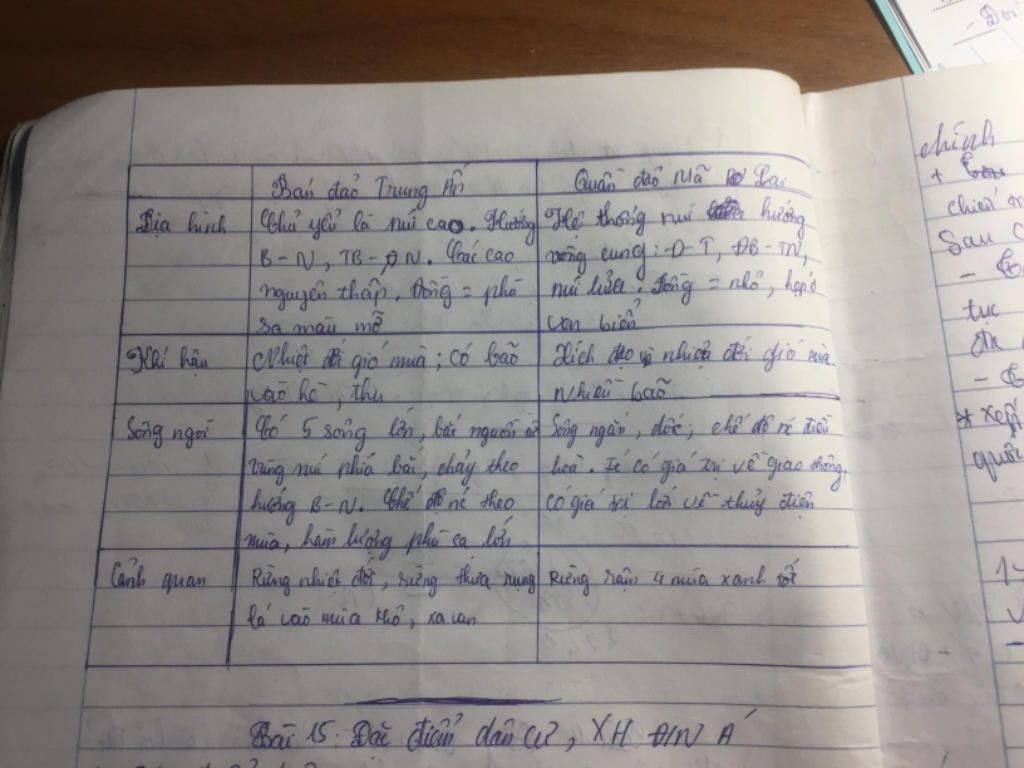 Đoi
Bán đảo Trung Ấn
Quần đảo Mã Lai
Địa hình
Chủ yếu là núi cao. Hướng
B-N, TB-ĐN. Các cao
nguyên thấp. Đồng = phù
sa màu mỡ
Hệ thống núi hướng
vòng cung: Đ-T, ĐB-TN,
núi lửa. Đồng = nhỏ, hẹp ở
ven biển
Khí hậu
Nhiệt đới gió mùa; có bão
vào hè, thu
Xích đạo và nhiệt đới gió mùa
nhiều bão
Sông ngòi
Có 5 sông lớn, bắt nguồn từ
vùng núi phía bắc, chảy theo
hướng B-N. Chế độ nc theo
mùa, hàm lượng phù sa lớn
Sông ngắn, dốc; chế độ nc điều
hoà. Ít có giá trị về giao thông,
có giá trị lớn về thủy điện
Cảnh quan
Rừng nhiệt đới, rừng thưa rụng
lá vào mùa khô, xa van
Rừng rậm 4 mùa xanh tốt
Bài 15: Đặc điểm dân cư, XH ĐN Á
chính
+
chiến
Sau
tục
* xếp
quốc